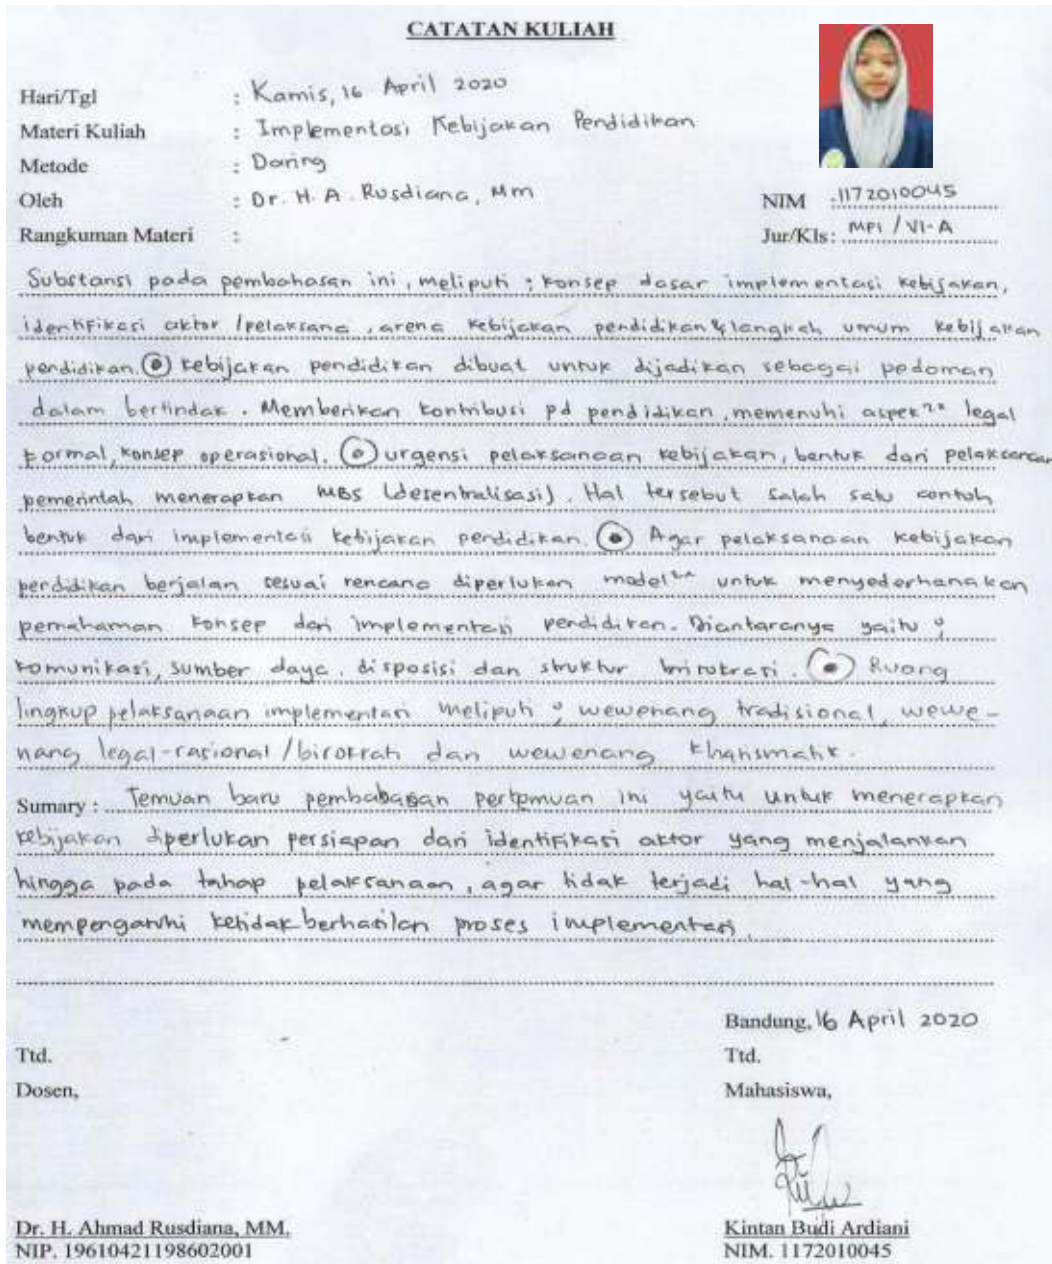 CATATAN KULIAH
Hari/Tgl : Kamis, 16 April 2020
Materi Kuliah : Implementasi Kebijakan Pendidikan
Metode : Daring
Oleh : Dr. H. A. Rusdiana, MM
NIM : 1172010045
Rangkuman Materi :
Jur/Kls : MPI / VI-A
Substansi pada pembahasan ini, meliputi : konsep dasar implementasi kebijakan,
identifikasi aktor / pelaksana, arena kebijakan pendidikan & langkah umum kebijakan
pendidikan. kebijakan pendidikan dibuat untuk dijadikan sebagai pedoman
dalam bertindak. Memberikan kontribusi pd pendidikan, memenuhi aspek²ⁿ legal
formal, konsep operasional. urgensi pelaksanaan kebijakan, bentuk dari pelaksanaan
pemerintah menerapkan MBS (desentralisasi). Hal tersebut salah satu contoh
bentuk dari implementasi kebijakan pendidikan. Agar pelaksanaan kebijakan
pendidikan berjalan sesuai rencana diperlukan model²ⁿ untuk menyederhanakan
pemahaman konsep dari implementasi pendidikan. Diantaranya yaitu :
komunikasi, sumber daya, disposisi dan struktur birokrasi. Ruang
lingkup pelaksanaan implementasi meliputi : wewenang tradisional, wewe-
nang legal-rasional / birokrati dan wewenang kharismatik.
Sumary : Temuan baru pembahasan pertemuan ini yaitu untuk menerapkan
kebijakan diperlukan persiapan dari identifikasi aktor yang menjalankan
hingga pada tahap pelaksanaan, agar tidak terjadi hal-hal yang
mempengaruhi ketidakberhasilan proses implementasi.
Bandung, 16 April 2020
Ttd. Ttd.
Dosen, Mahasiswa,
Dr. H. Ahmad Rusdiana, MM. Kintan Budi Ardiani
NIP. 19610421198602001 NIM. 1172010045